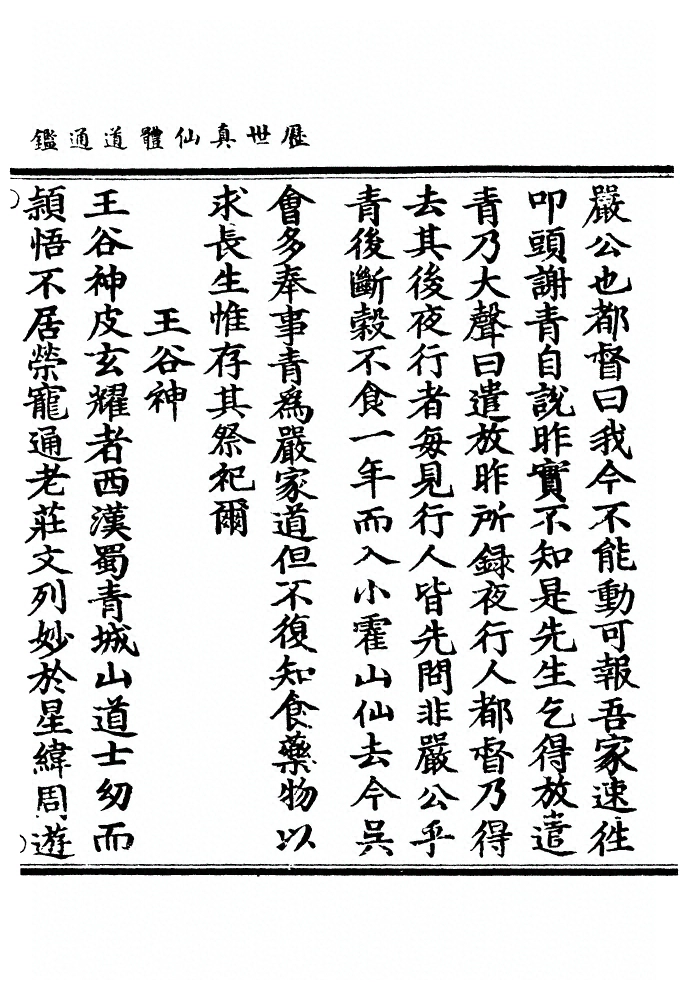 歷世真仙體道通鑑
嚴公也都督曰我今不能動可報吾家速往
叩頭謝青自說昨實不知是先生乞得放遣
青乃大聲曰遣放昨所錄夜行人都督乃得
去其後夜行者每見行人皆先問非嚴公乎
青後斷穀不食一年而入小霍山仙去今吳
會多奉事青為嚴家道但不復知食藥物以
求長生惟存其祭祀爾
王谷神
王谷神皮玄耀者西漢蜀青城山道士幼而
頴悟不居榮寵通老莊文列妙於星緯周遊